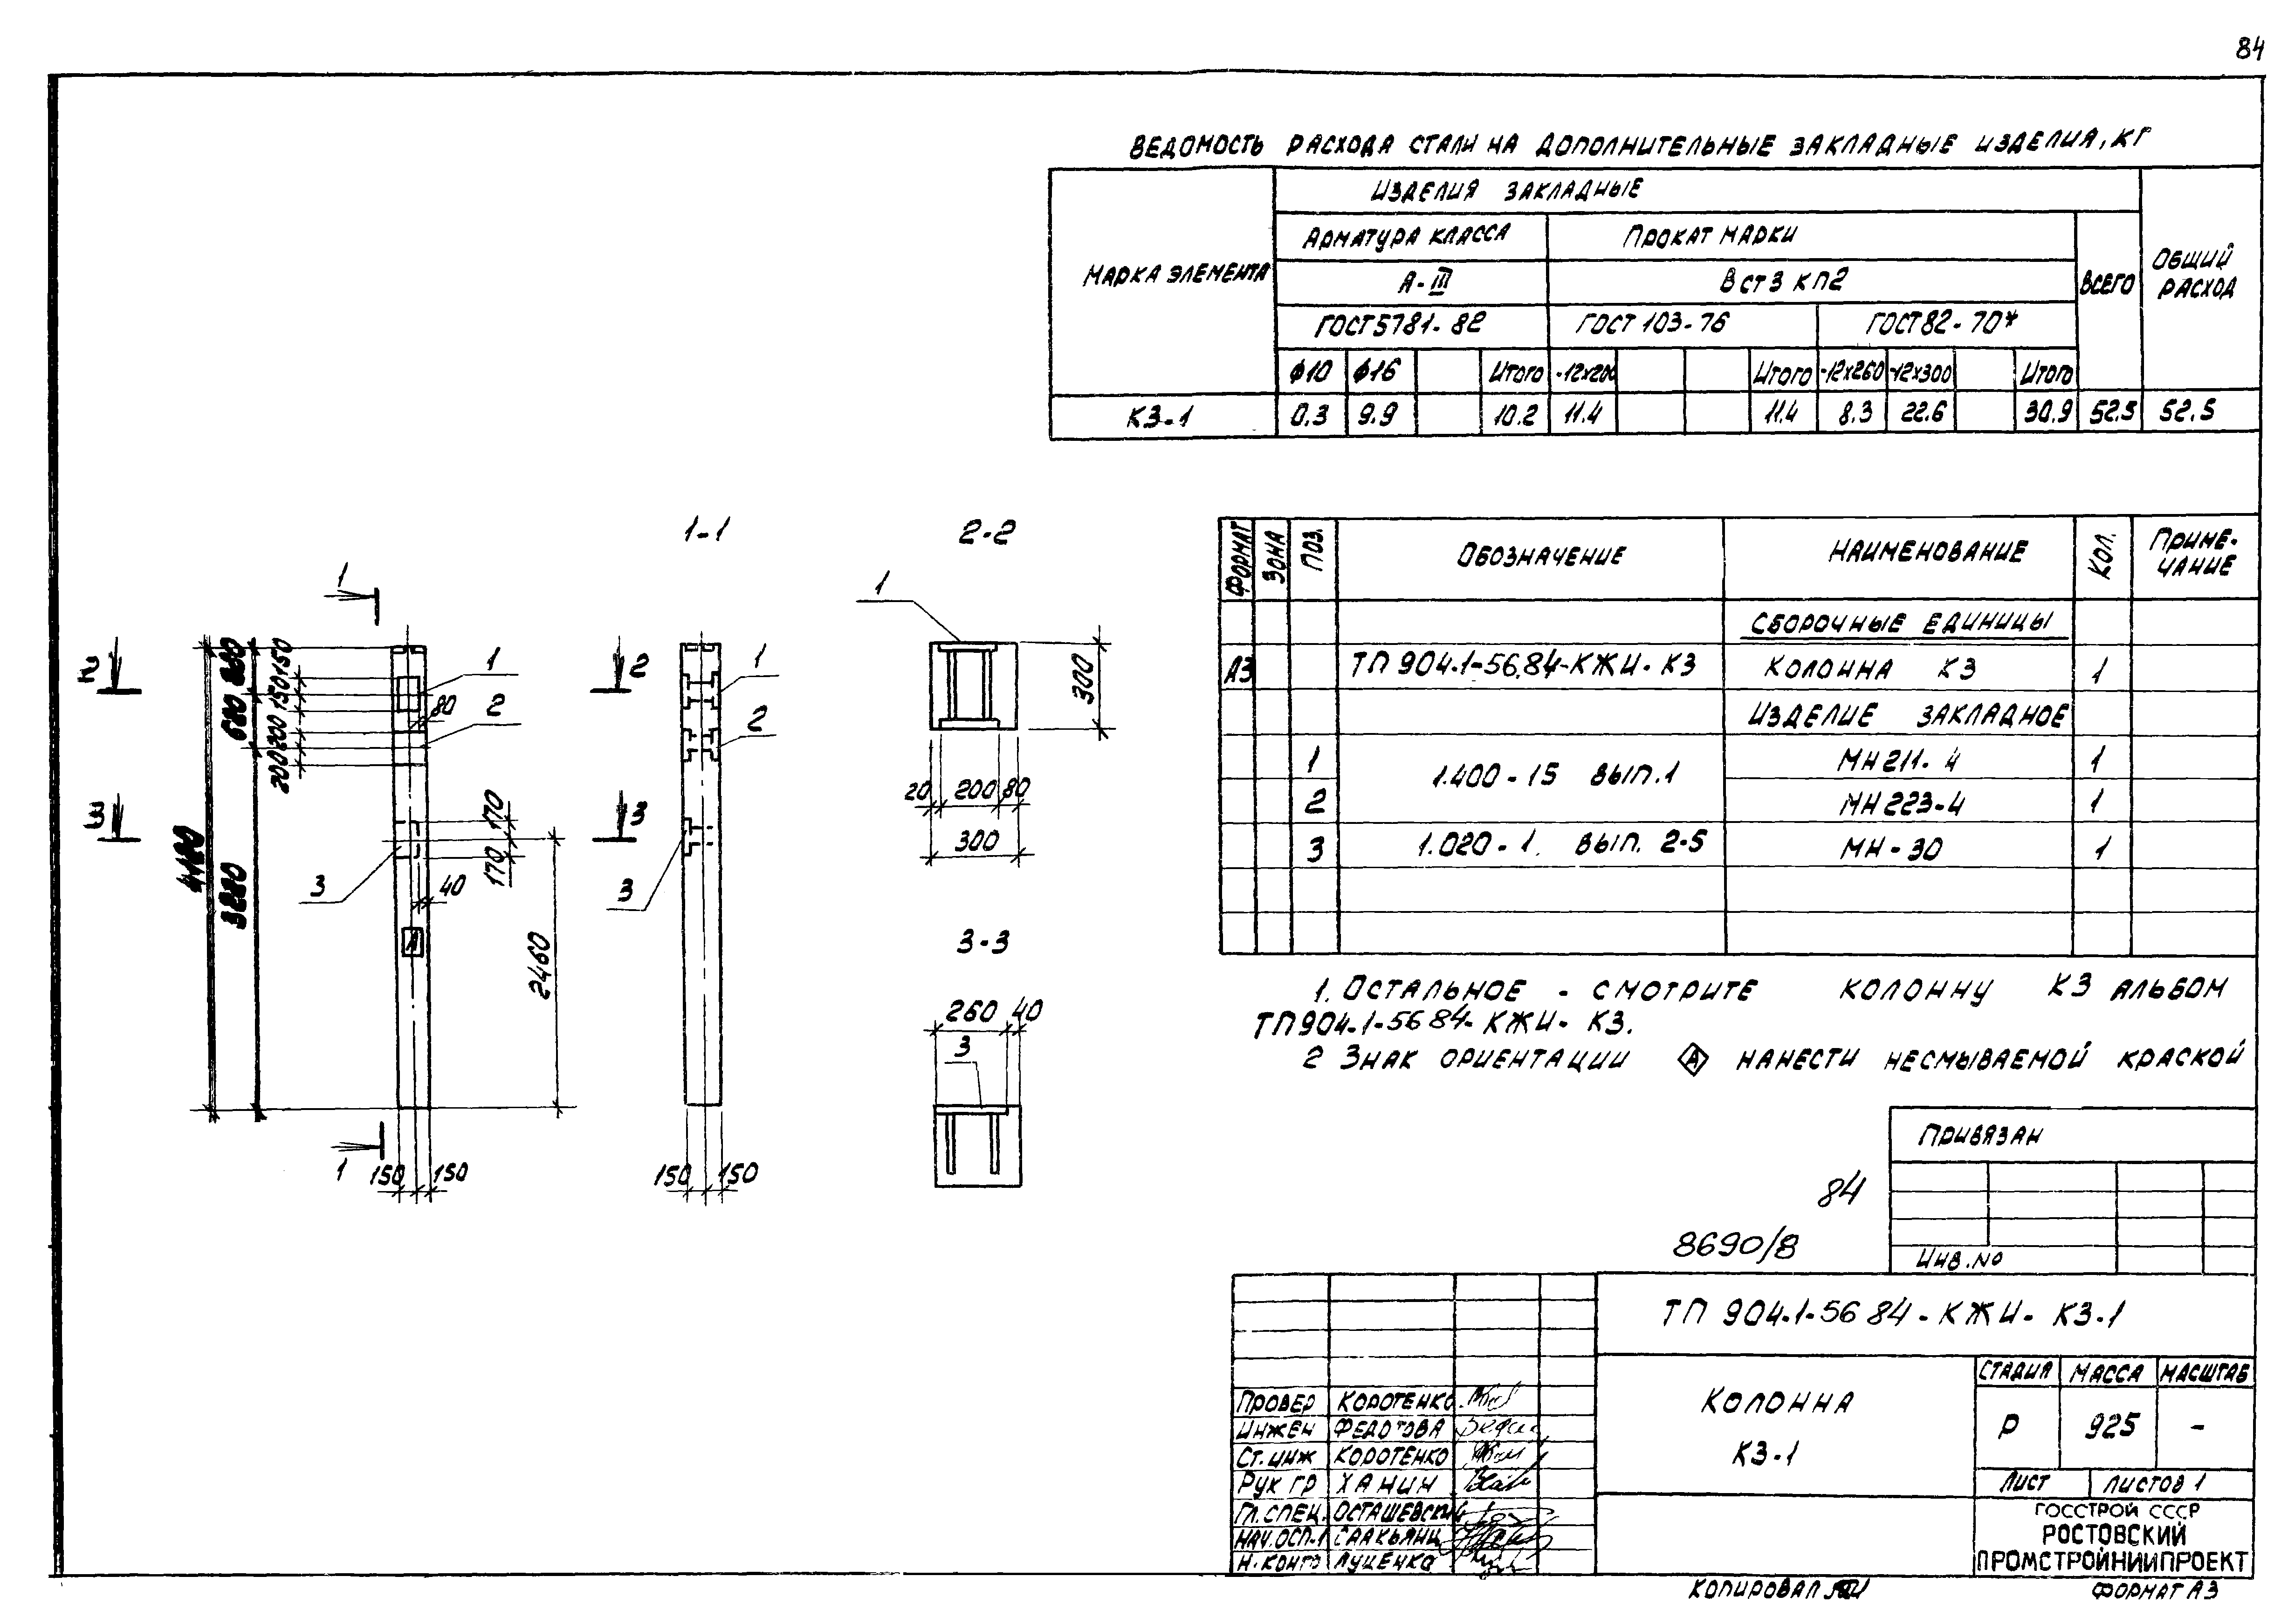 84
ВЕДОМОСТЬ РАСХОДА СТАЛИ НА ДОПОЛНИТЕЛЬНЫЕ ЗАКЛАДНЫЕ ИЗДЕЛИЯ, КГ
МАРКА ЭЛЕМЕНТА
ИЗДЕЛИЯ ЗАКЛАДНЫЕ
ОБЩИЙ РАСХОД
АРМАТУРА КЛАССА
ПРОКАТ МАРКИ
ВСЕГО
А-III
В СТ 3 КП2
ГОСТ 5781-82
ГОСТ 103-76
ГОСТ 82-70*
ϕ10 ϕ16 ИТОГО -12х200 ИТОГО -12х260 -12х300 ИТОГО
К3-1 0.3 9.9 10.2 11.4 11.4 8.3 22.6 30.9 52.5 52.5
1-1
2-2
3-3
1
1
2
2
3
3
1
2
3
1
2
3
1
150
150
200
200
80
170
170
40
2460
150 150
150 150
2
2
3
3
1
300
20 200 80
300
260 40
3
ФОРМАТ ЗОНА ПОЗ. ОБОЗНАЧЕНИЕ НАИМЕНОВАНИЕ КОЛ. ПРИМЕ-
ЧАНИЕ
СБОРОЧНЫЕ ЕДИНИЦЫ
А3 ТП 904.1-56.84-КЖИ-К3 КОЛОННА К3 1
ИЗДЕЛИЕ ЗАКЛАДНОЕ
1 1.400-15 ВЫП.1 МН 211-4 1
2 МН 223-4 1
3 1.020-1. ВЫП. 2-5 МН-30 1
1. ОСТАЛЬНОЕ - СМОТРИТЕ КОЛОННУ К3 АЛЬБОМ
ТП 904-1-56 84-КЖИ-К3.
2 ЗНАК ОРИЕНТАЦИИ А НАНЕСТИ НЕСМЫВАЕМОЙ КРАСКОЙ
ПРИВЯЗАН
ИНВ. NO
84
8690/8
ТП 904-1-56 84-КЖИ-К3-1
КОЛОННА
К3-1
СТАДИЯ МАССА МАСШТАБ
Р 925 -
ЛИСТ ЛИСТОВ 1
ГОССТРОЙ СССР
РОСТОВСКИЙ
ПРОМСТРОЙНИИПРОЕКТ
ПРОВЕР КОРОТЕНКО
ИНЖЕН ФЕДОТОВА
СТ. ИНЖ КОРОТЕНКО
РУК ГР ХАНИН
ГЛ. СПЕЦ. ОСТАШЕВСКИЙ
НАЧ. ОСП-1 СААКЬЯНЦ
Н. КОНТР ЛУЦЕНКО
КОПИРОВАЛ
ФОРМАТ А3